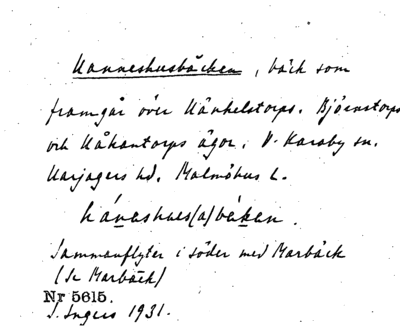 Hanneshusbäcken, bäck som
framgår över Hänkelstorps, Björnstorps
och Håkantorps ägor i V. Karaby sn.
Harjagers hd. Malmöhus l.
hánashus(a)bäkan.
Sammanflyter i söder med Marbäck
(se Marbäck)
Nr 5615.
I. Ingers 1931.